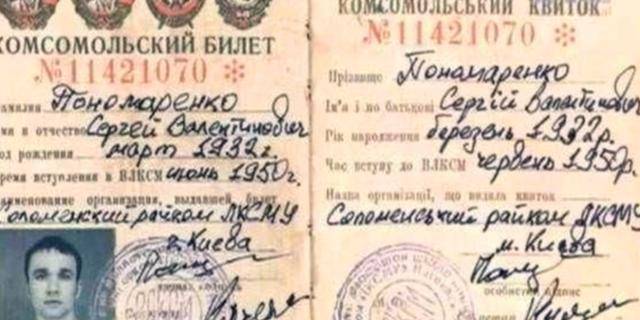 КОМСОМОЛЬСКИЙ БИЛЕТ
№11421070 *
Фамилия Пономаренко
Имя и отчество Сергей Валентинович
Год рождения март 1932 г.
Время вступления в ВЛКСМ июнь 1950 г.
Наименование организации, выдавшей билет
Соломенский райком ЛКСМУ
г. Киева
КОМСОМОЛЬСЬКИЙ КВИТОК
№11421070 *
Прізвище Пономаренко
Ім'я і по батькові Сергій Валентинович
Рік народження березень 1932 р.
Час вступу до ВЛКСМ червень 1950р.
Назва організації, що видала квиток
Соломенський райком ЛКСМУ
м. Києва
Особистий підпис